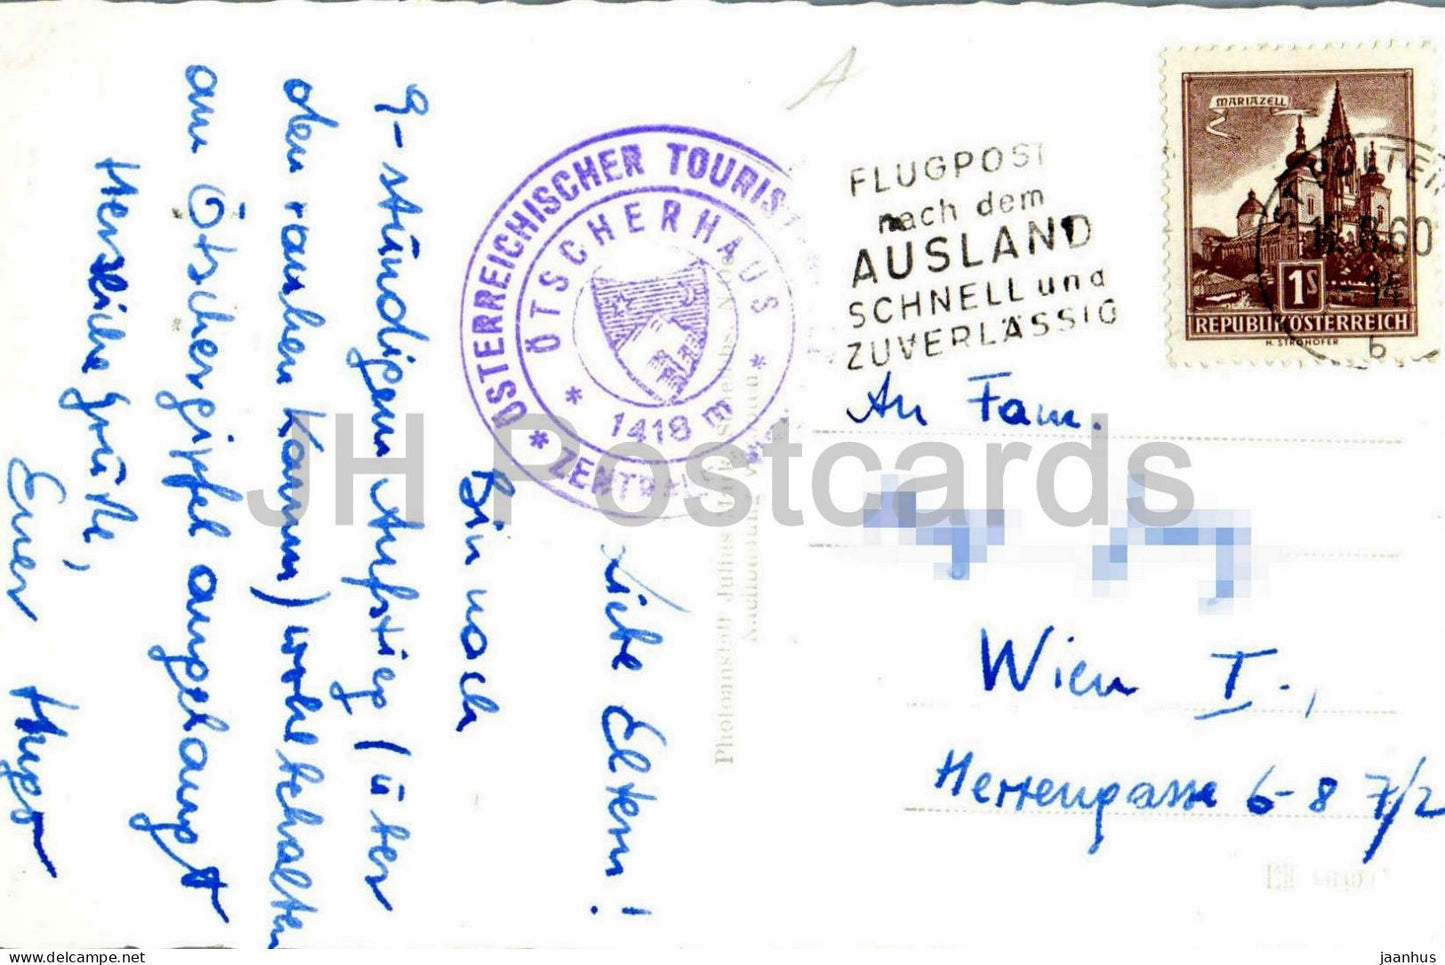 Liebe Eltern!
Bin nach
9-stündigem Aufstieg (über
den rauhen Kamm) wohlbehalten
am Ötschergipfel angelangt
Herzliche Grüße,
Euer Hugo
ÖSTERREICHISCHER TOURIST
ÖTSCHERHAUS
* 1418 m *
* ZENTRALE
FLUGPOST
nach dem
AUSLAND
SCHNELL und
ZUVERLÄSSIG
MARIAZELL
1S
REPUBLIK ÖSTERREICH
H. STROHOFER
60
14
b
Photoanstalt Julius
An Fam.
Wien I.,
Herrengasse 6-8 7/2
JH Postcards
jaanhus
delcampe.net